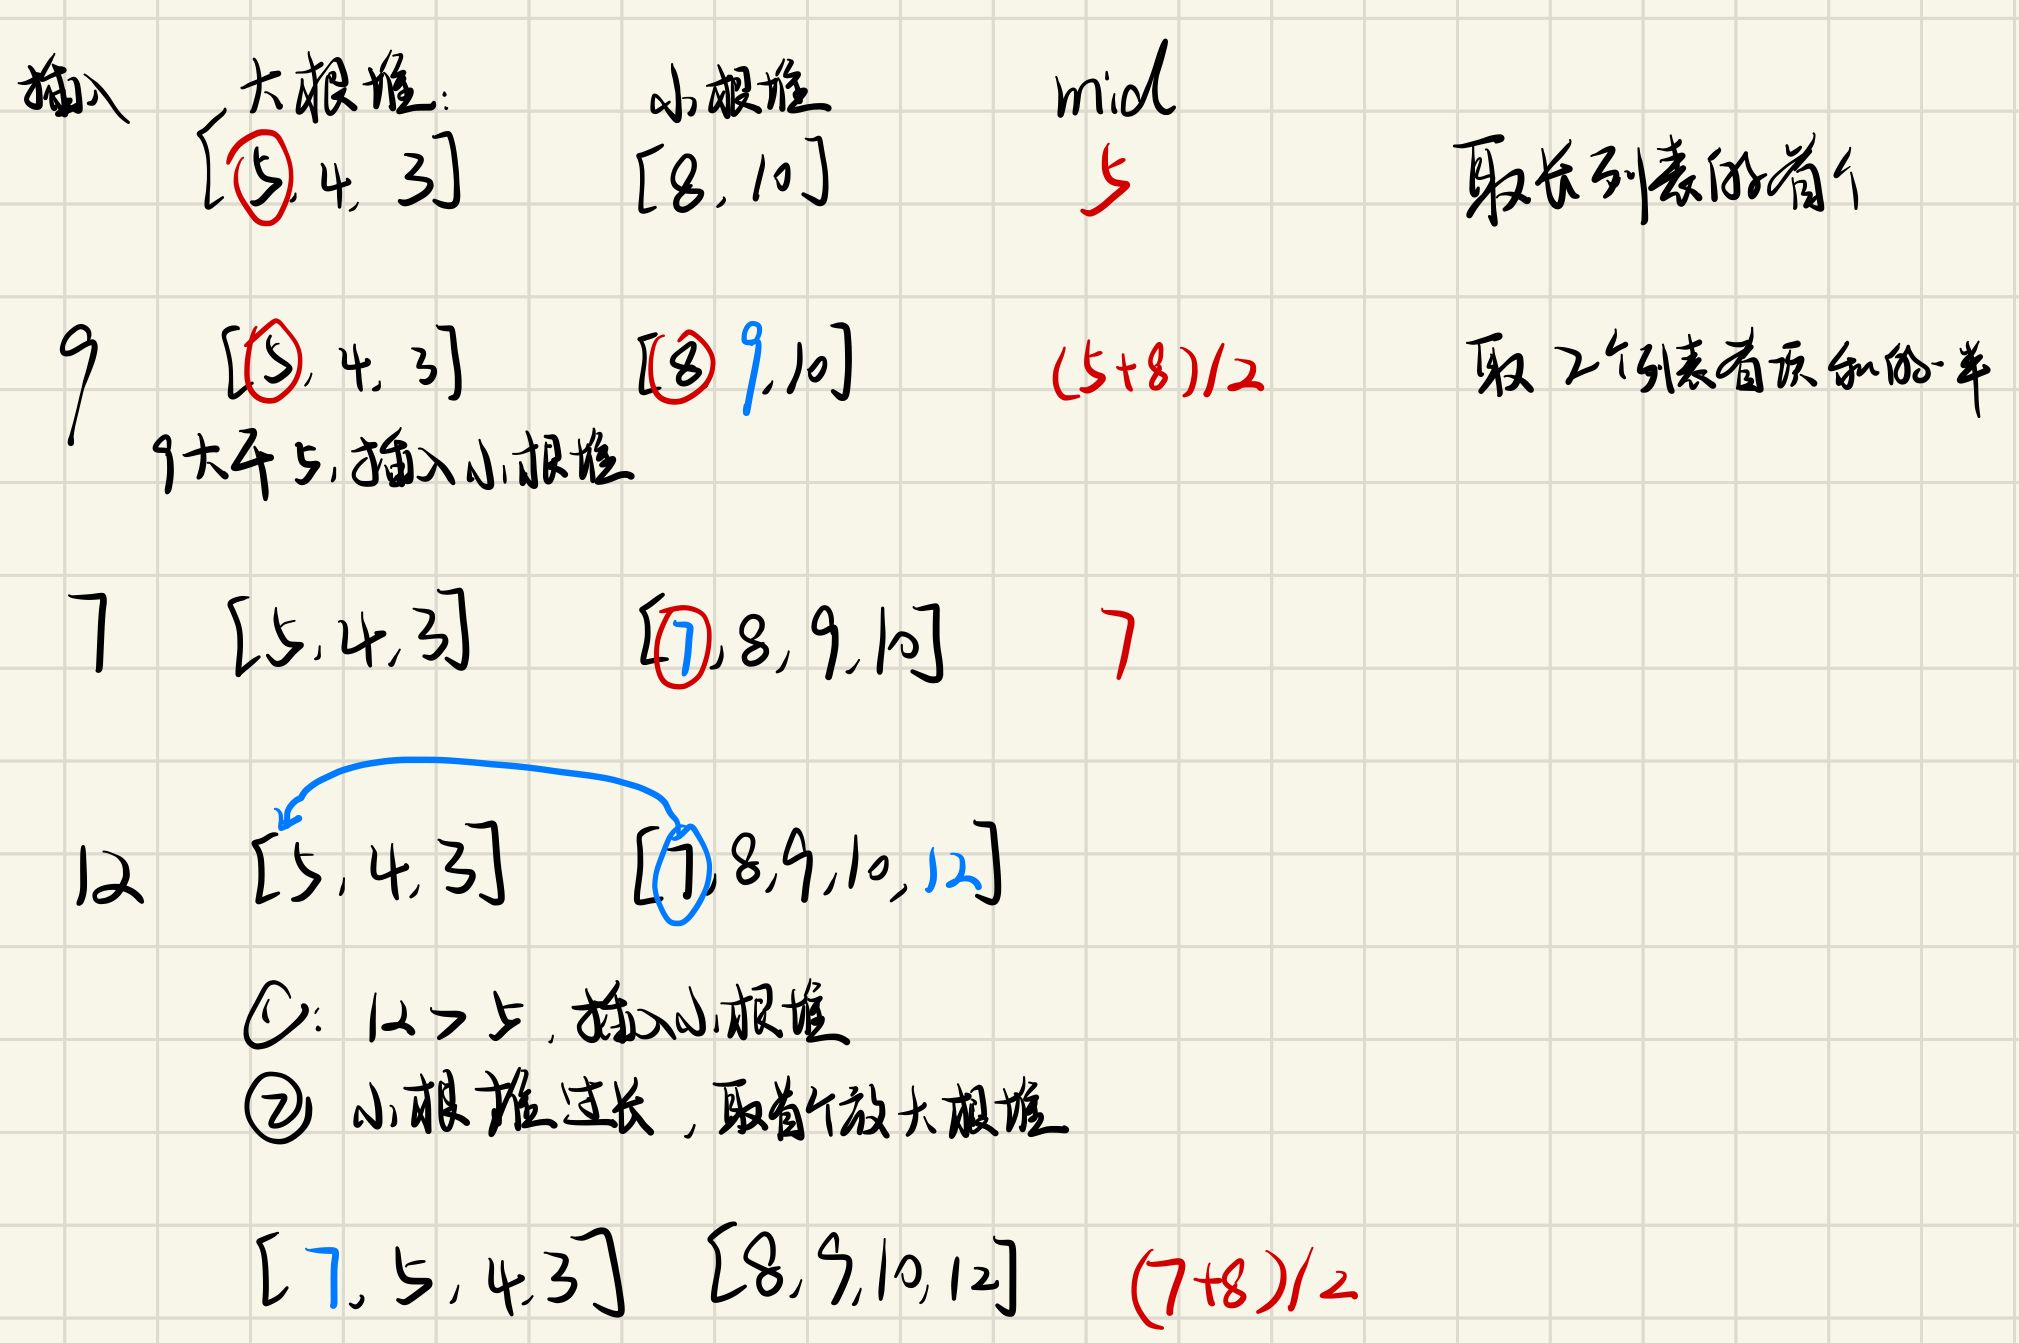 插入 大根堆: 小根堆 mid
[5, 4, 3] [8, 10] 5 取长列表的首个
9 [5, 4, 3] [8 9, 10] (5+8)/2 取2个列表首项和的一半
9大于5, 插入小根堆
7 [5, 4, 3] [7, 8, 9, 10] 7
12 [5, 4, 3] [7, 8, 9, 10, 12]
①: 12 > 5, 插入小根堆
② 小根堆过长, 取首个放大根堆
[7, 5, 4, 3] [8, 9, 10, 12] (7+8)/2